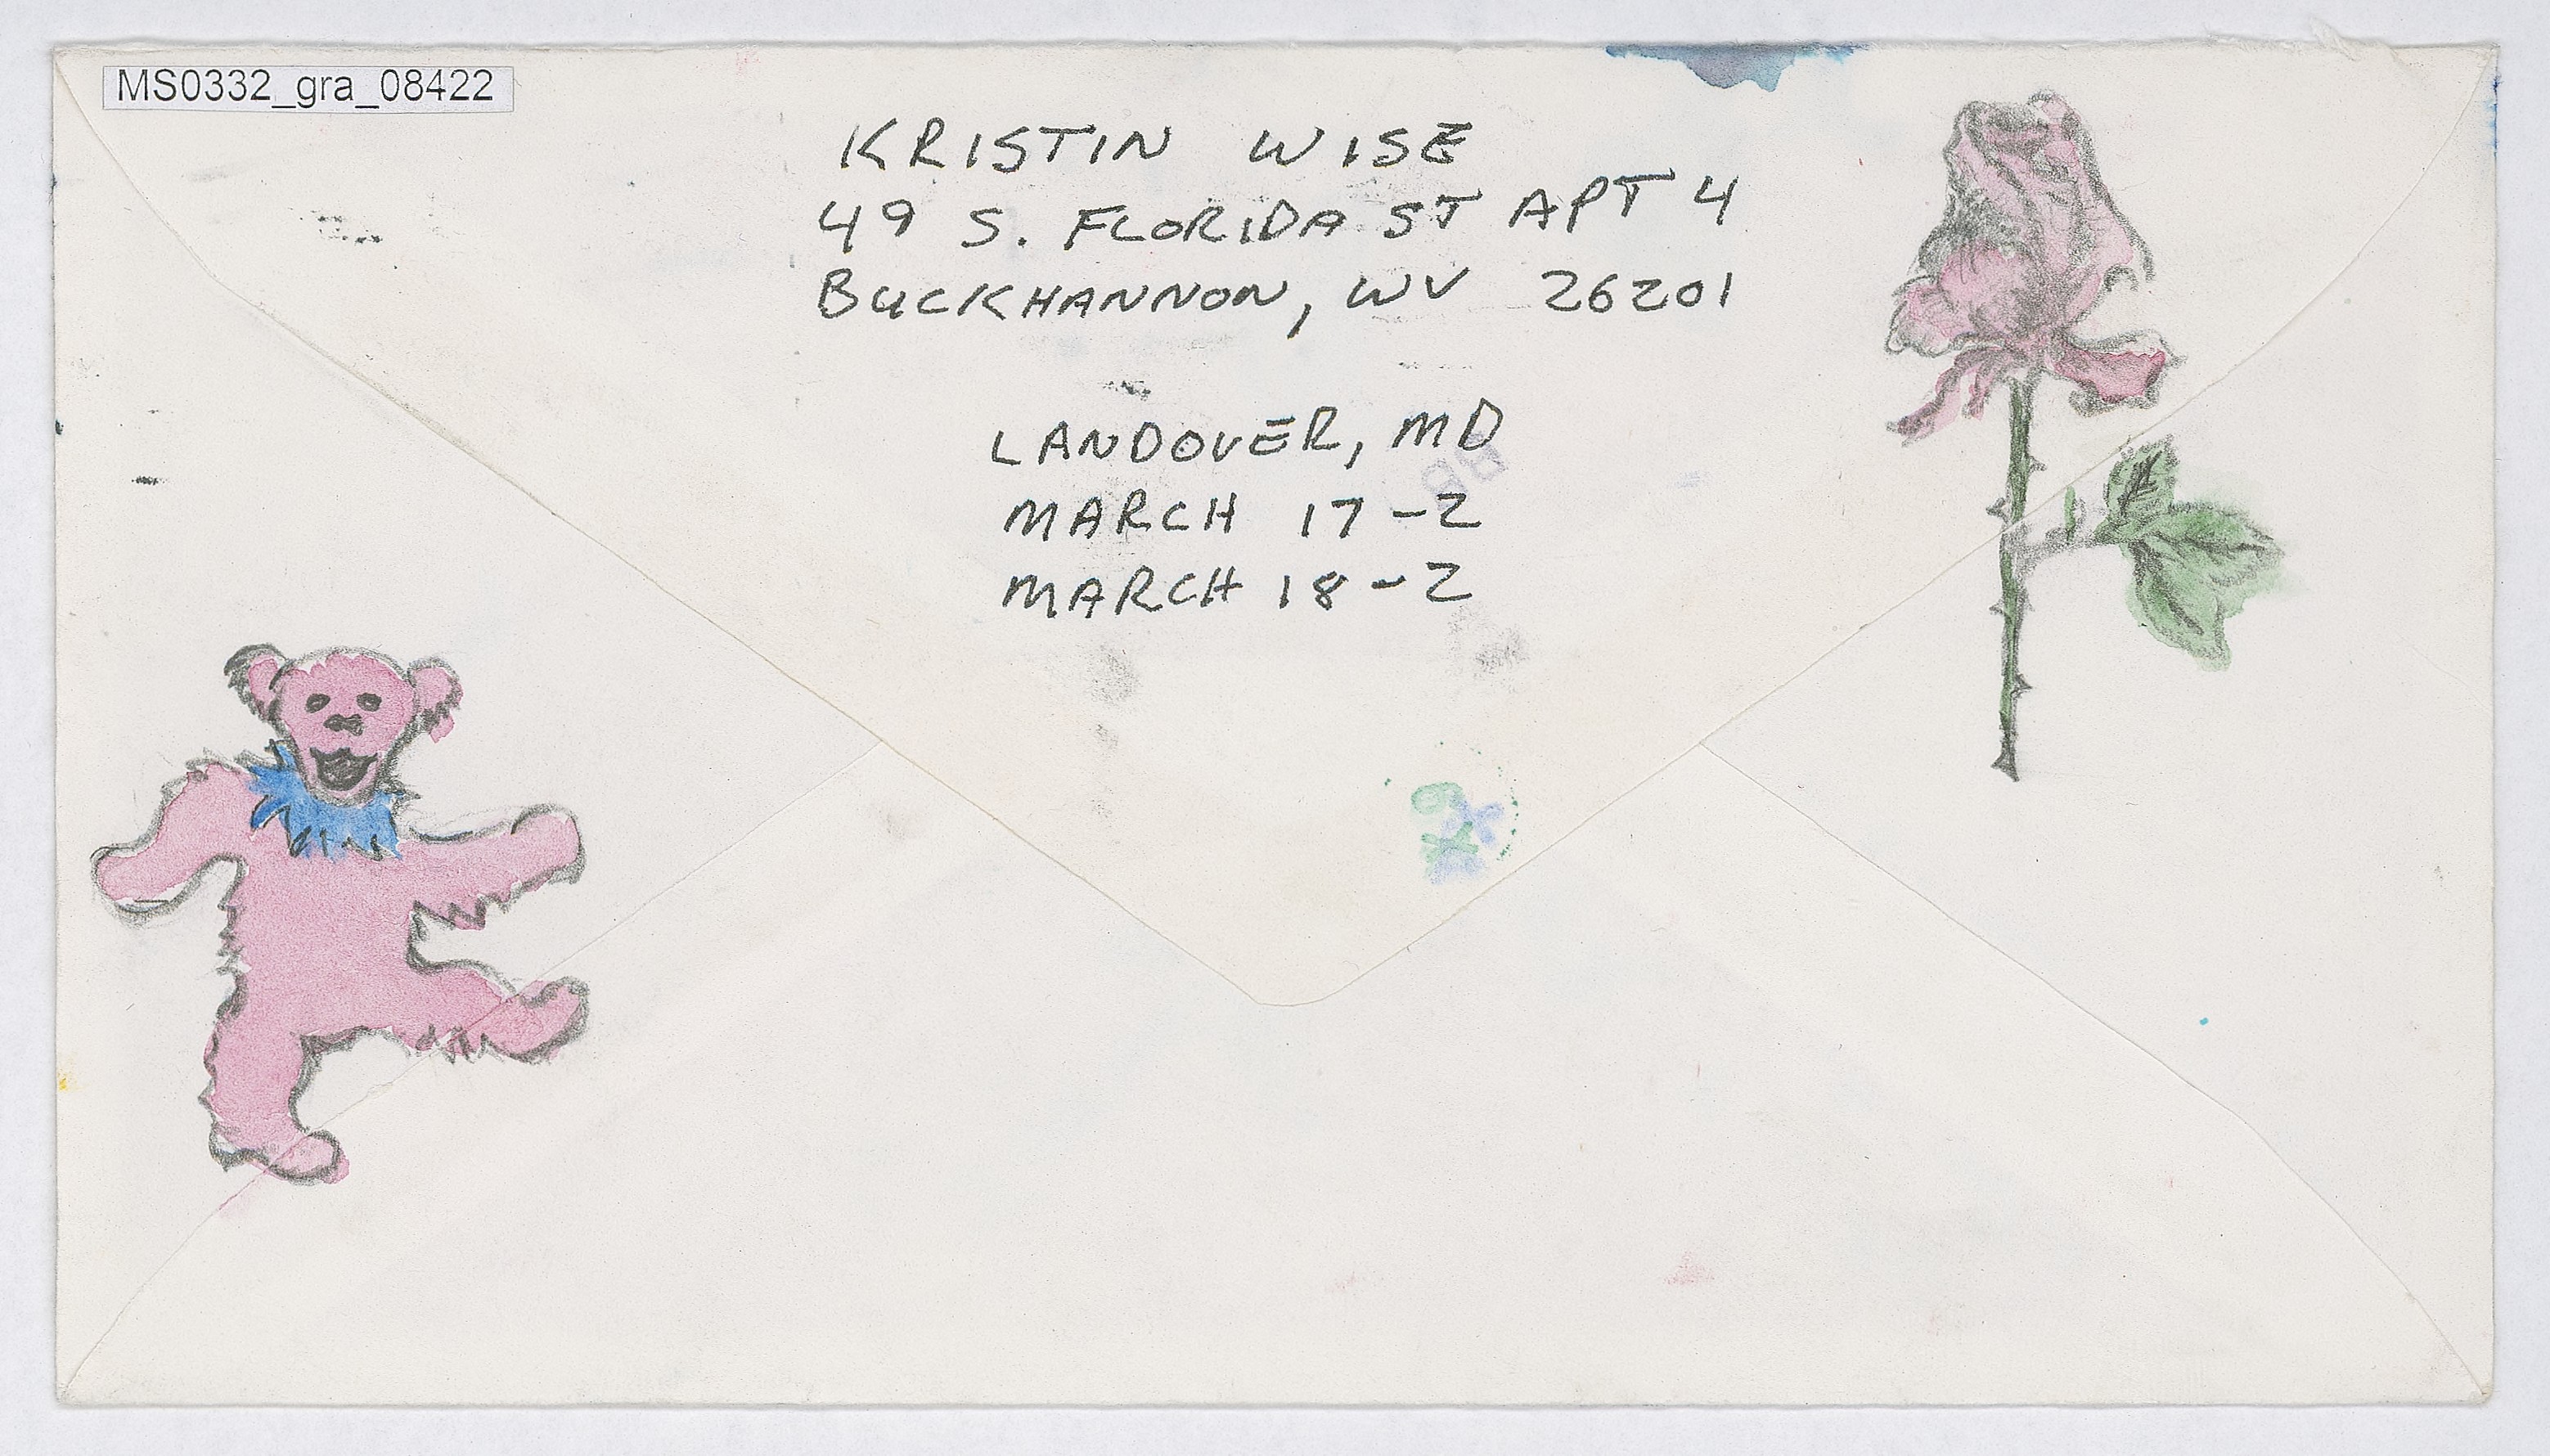 MS0332_gra_08422
KRISTIN WISE
49 S. FLORIDA ST APT 4
BUCKHANNON, WV 26201
LANDOVER, MD
MARCH 17-2
MARCH 18-2